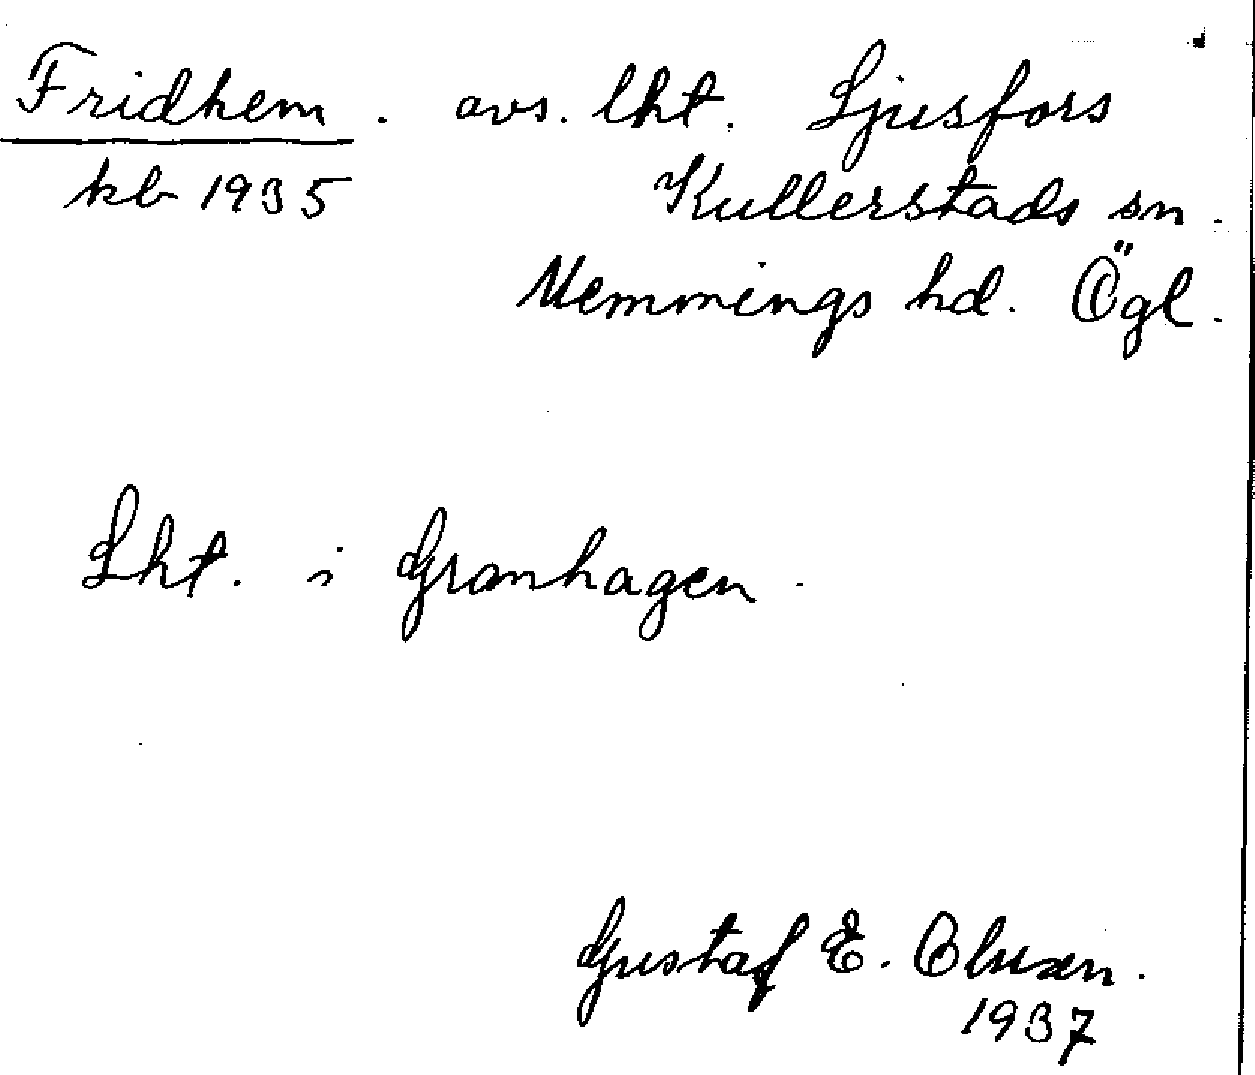 Fridhem. avs. lht. Ljusfors
kb 1935 Kullerstads sn.
Memmings hd. Ögl.
Lht. i Granhagen.
Gustaf E. Olsson.
1937